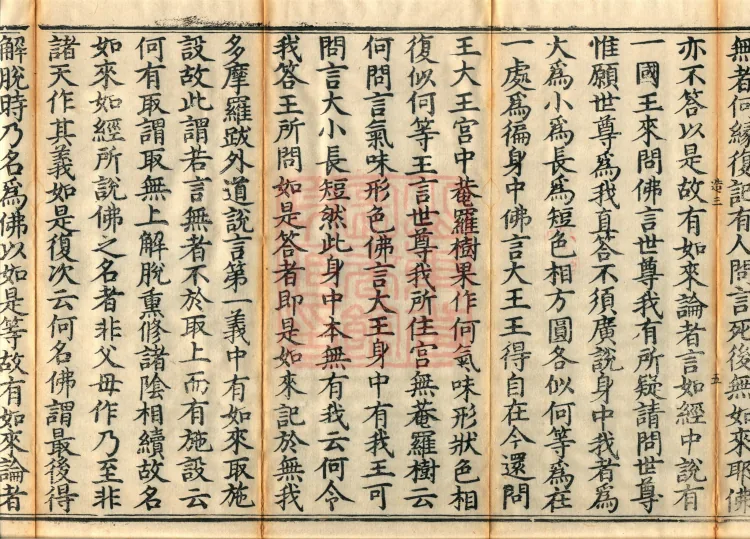 無者何緣復記有人問言死後無如來耶佛
亦不答以是故有如來論者言如經中說有
一國王來問佛言世尊我有所疑請問世尊
惟願世尊為我直答不須廣說身中我者為
大為小為長為短色相方圓各似何等為在
一處為徧身中佛言大王王得自在今還問
王大王宫中菴羅樹果作何氣味形狀色相
復似何等王言世尊我所住宫無菴羅樹云
何問言氣味形色佛言大王身中有我王可
問言大小長短然此身中本無有我云何令
我答王所問如是答者即是如來記於無我
多摩羅跋外道說言第一義中有如來取施
設故此謂若言無者不於取上而有施設云
何有取謂取無上解脫熏修諸陰相續故名
如來如經所說佛之名者非父母作乃至非
諸天作其義如是復次云何名佛謂最後得
解脫時乃名為佛以如是等故有如來論者
造三
五